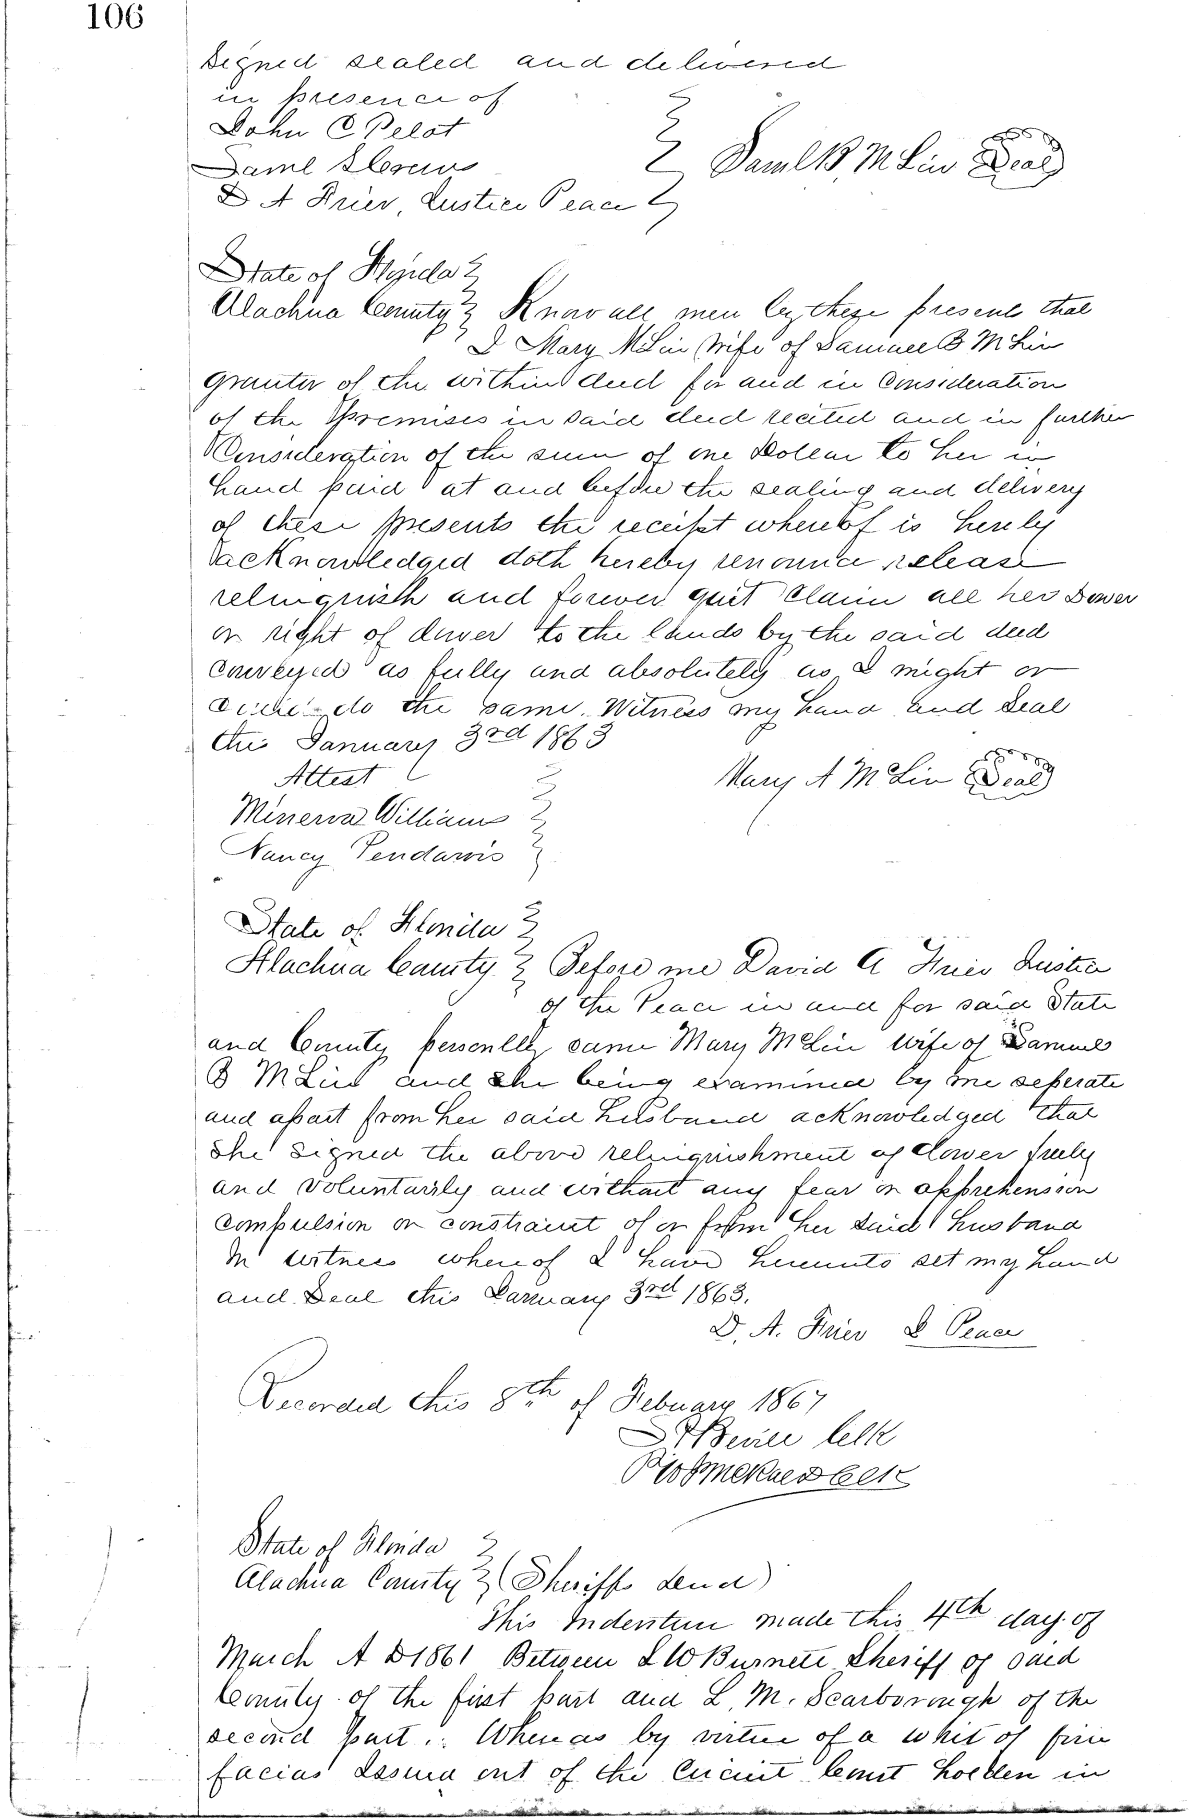 106
Signed sealed and delivered
in presence of
John C Pelot
Saml
D A Frier, Justice Peace
Saml B, McLin Seal
State of Florida
Alachua County Know all men by these presents that
I Mary McLin Wife of Samuel B McLin
grantor of the within deed for and in Consideration
of the Premises in said deed recited and in further
Consideration of the sum of one Dollar to her in
hand paid at and before the sealing and delivery
of these presents the receipt whereof is hereby
acknowledged doth hereby renounce release
relinquish and forever quit claim all her Dower
or right of dower to the lands by the said deed
conveyed as fully and absolutely as I might or
could do the same. Witness my hand and Seal
this January 3rd 1863
Attest
Mary A McLin Seal
Minerva Williams
Nancy Pendarvis
State of Florida
Alachua County Before me David A Frier Justice
of the Peace in and for said State
and County personlly came Mary McLin wife of Samuel
B McLin and she being examined by me seperate
and apart from her said husband acknowledged that
she signed the above relinquishment of dower freely
and voluntarily and without any fear or apprehension
compulsion or constraint of or from her said husband
In witness whereof I have hereunto set my hand
and Seal this January 3rd 1863.
D. A. Frier J Peace
Recorded this 8th of Febuary 1867
Bevill Celk
State of Florida
Alachua County (Sheriffs deed)
This Indenture made this 4th day of
March A D 1861 Between L W Burnett Sheriff of said
County of the first part and L. M. Scarborough of the
second part :. Whereas by virtue of a whit of firie
facias Issued out of the Circuit Court holden in